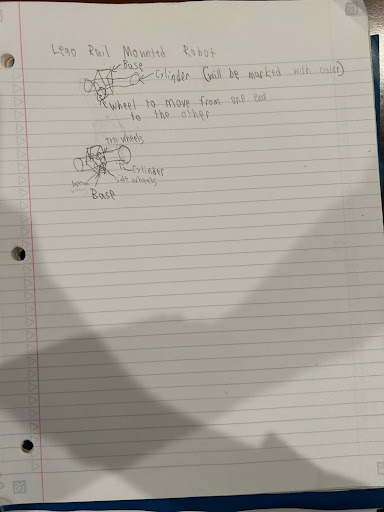 Lego Rail Mounted Robot
Base
Cylinder (will be marked with color)
Wheel to move from one end
to the other
Top wheels
Cylinder
Side wheels
Base